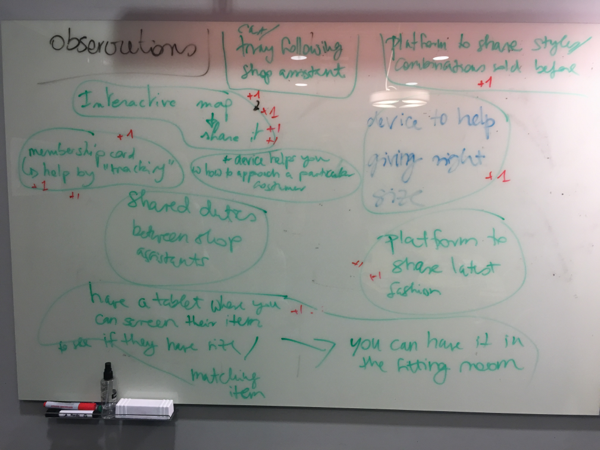 observations
car/
tray following
shop assistant
platform to share styles/
combinations sold before
+1
Interactive map
+1
2
+1
share it
+1
+1
+1
membership card
help by "tracking"
+1
+1
+ device helps you
how to approach a particular
costumer
device to help
giving right
size
+1
Shared duties
between shop
assistants
platform to
share latest
fashion
+1
+1
have a tablet where you
can screen their item
to see if they have size/
matching
item
+1
you can have it in
the fitting room